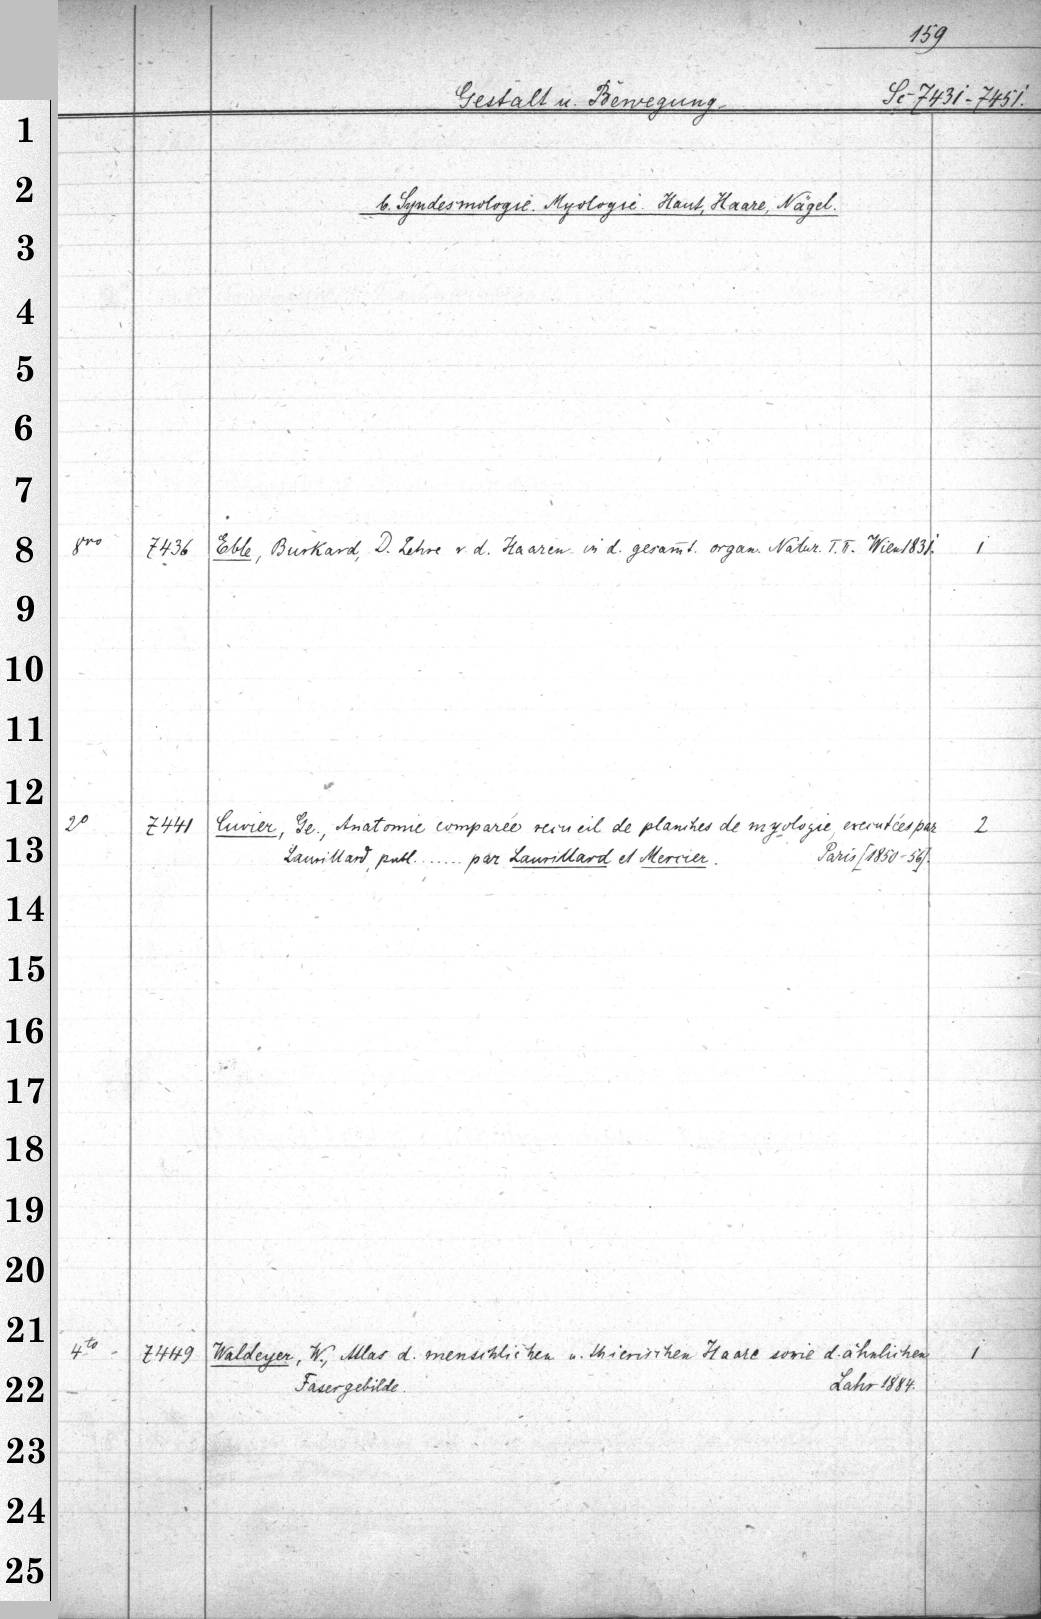 159
Gestalt u. Bewegung. Sc-7431-7451.
1
2 b. Syndesmologie. Myologie. Haut, Haare, Nägel.
3
4
5
6
7
8 8vo 7436 Eble, Burkard, D. Lehre v. d. Haaren in d. gesam̄t. organ. Natur. I. II. Wien 1831. 1
9
10
11
12
2o 7441 Cuvier, Ge., Anatomie comparée recueil de planches de myologie, executées par 2
13 Laurillard, publ. ...... par Laurillard et Mercier. Paris [1850-56].
14
15
16
17
18
19
20
21
4to - 7449 Waldeyer, W., Atlas d. menschlichen u. thierischen Haare sowie d. ähnlichen 1
22 Fasergebilde. Lahr 1884.
23
24
25